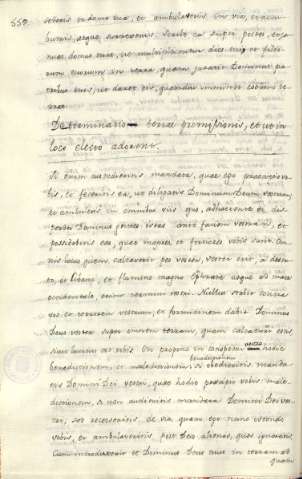 sederis in domo tua, et ambulaveris in via, et accubueris, atque surrexeris. Scribes ea super postes, et januas domus tuæ, ut multiplicentur dies tui et filiorum tuorum in terra, quam juravit Dominus patribus tuis, ut daret eis, quamdiu imminet cœlum terræ.
De terminatio terræ promissionis, et ut in
loco electo adorent.
Si enim custodieritis mandata, quae ego præcipio vobis, et feceritis ea, ut diligatis Dominum Deum vestrum,
et ambuletis in omnibus viis ejus, adhaerentes ei disperdet Dominus gentes istas ante faciem vestram, et
possidebitis eas, quae majores et fortiores vobis sunt. Omnis locus quem calcaverit pes vester, vester erit, a deserto, et Libano, et flumine magno Ephrate usque ad mare
occidentale, erunt termini vestri. Nullus stabit contra
vos; et terrorem vestrum, et formidinem dabit Dominus
Deus vester super omnem terram, quam calcaturi estis
sicut locutus est vobis. En propono in conspectu vestro
benedictionem, et maledictionem; si obedieritis mandatis Domini Dei vestri, quae hodie præcipio vobis: maledictionem, si non audieritis mandata Domini Dei vestri, sed recesseritis, de via quam ego nunc ostendo
vobis, et ambulaveritis, post Deos alienos, quos ignoratis
Cum introduxerit te Dominus Deus tuus in terram ad
quam